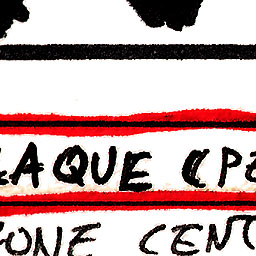 LAQUE (PE
ZONE CENT